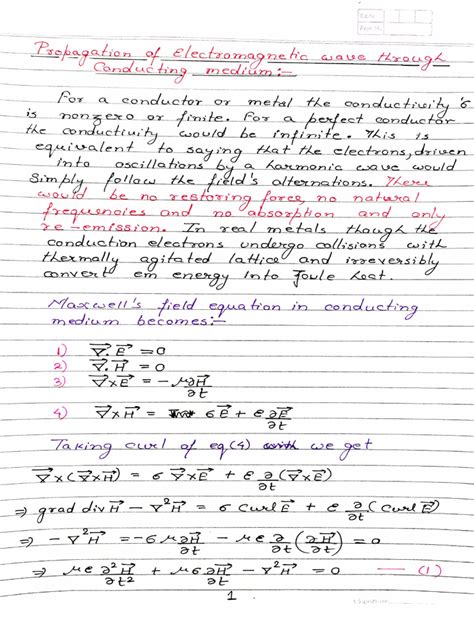 Propagation of Electromagnetic wave through
Conducting medium:-
For a conductor or metal the conductivity 'σ
is nonzero or finite. For a perfect conductor
the conductivity would be infinite. This is
equivalent to saying that the electrons, driven
into oscillations by a harmonic wave would
simply follow the field's alternations. There
would be no restoring force, no natural
frequencies and no absorption and only
re-emission. In real metals though the
conduction electrons undergo collisions with
thermally agitated lattice and irreversibly
convert em energy into Joule heat.
Maxwell's field equation in conducting
medium becomes:-
1) ∇⃗.E⃗ = 0
2) ∇⃗.H⃗ = 0
3) ∇⃗×E⃗ = -μ∂H⃗/∂t
4) ∇⃗×H⃗ = σE⃗ + ε∂E⃗/∂t
Taking curl of eq(4) we get
∇⃗×(∇⃗×H⃗) = σ∇⃗×E⃗ + ε∂/∂t(∇⃗×E⃗)
⇒ grad div H⃗ - ∇²H⃗ = σ curl E⃗ + ε∂/∂t(curl E⃗)
⇒ -∇²H⃗ = -σμ∂H⃗/∂t - με∂/∂t(∂H⃗/∂t) = 0
⇒ με∂²H⃗/∂t² + μσ∂H⃗/∂t - ∇²H⃗ = 0 — (1)
1